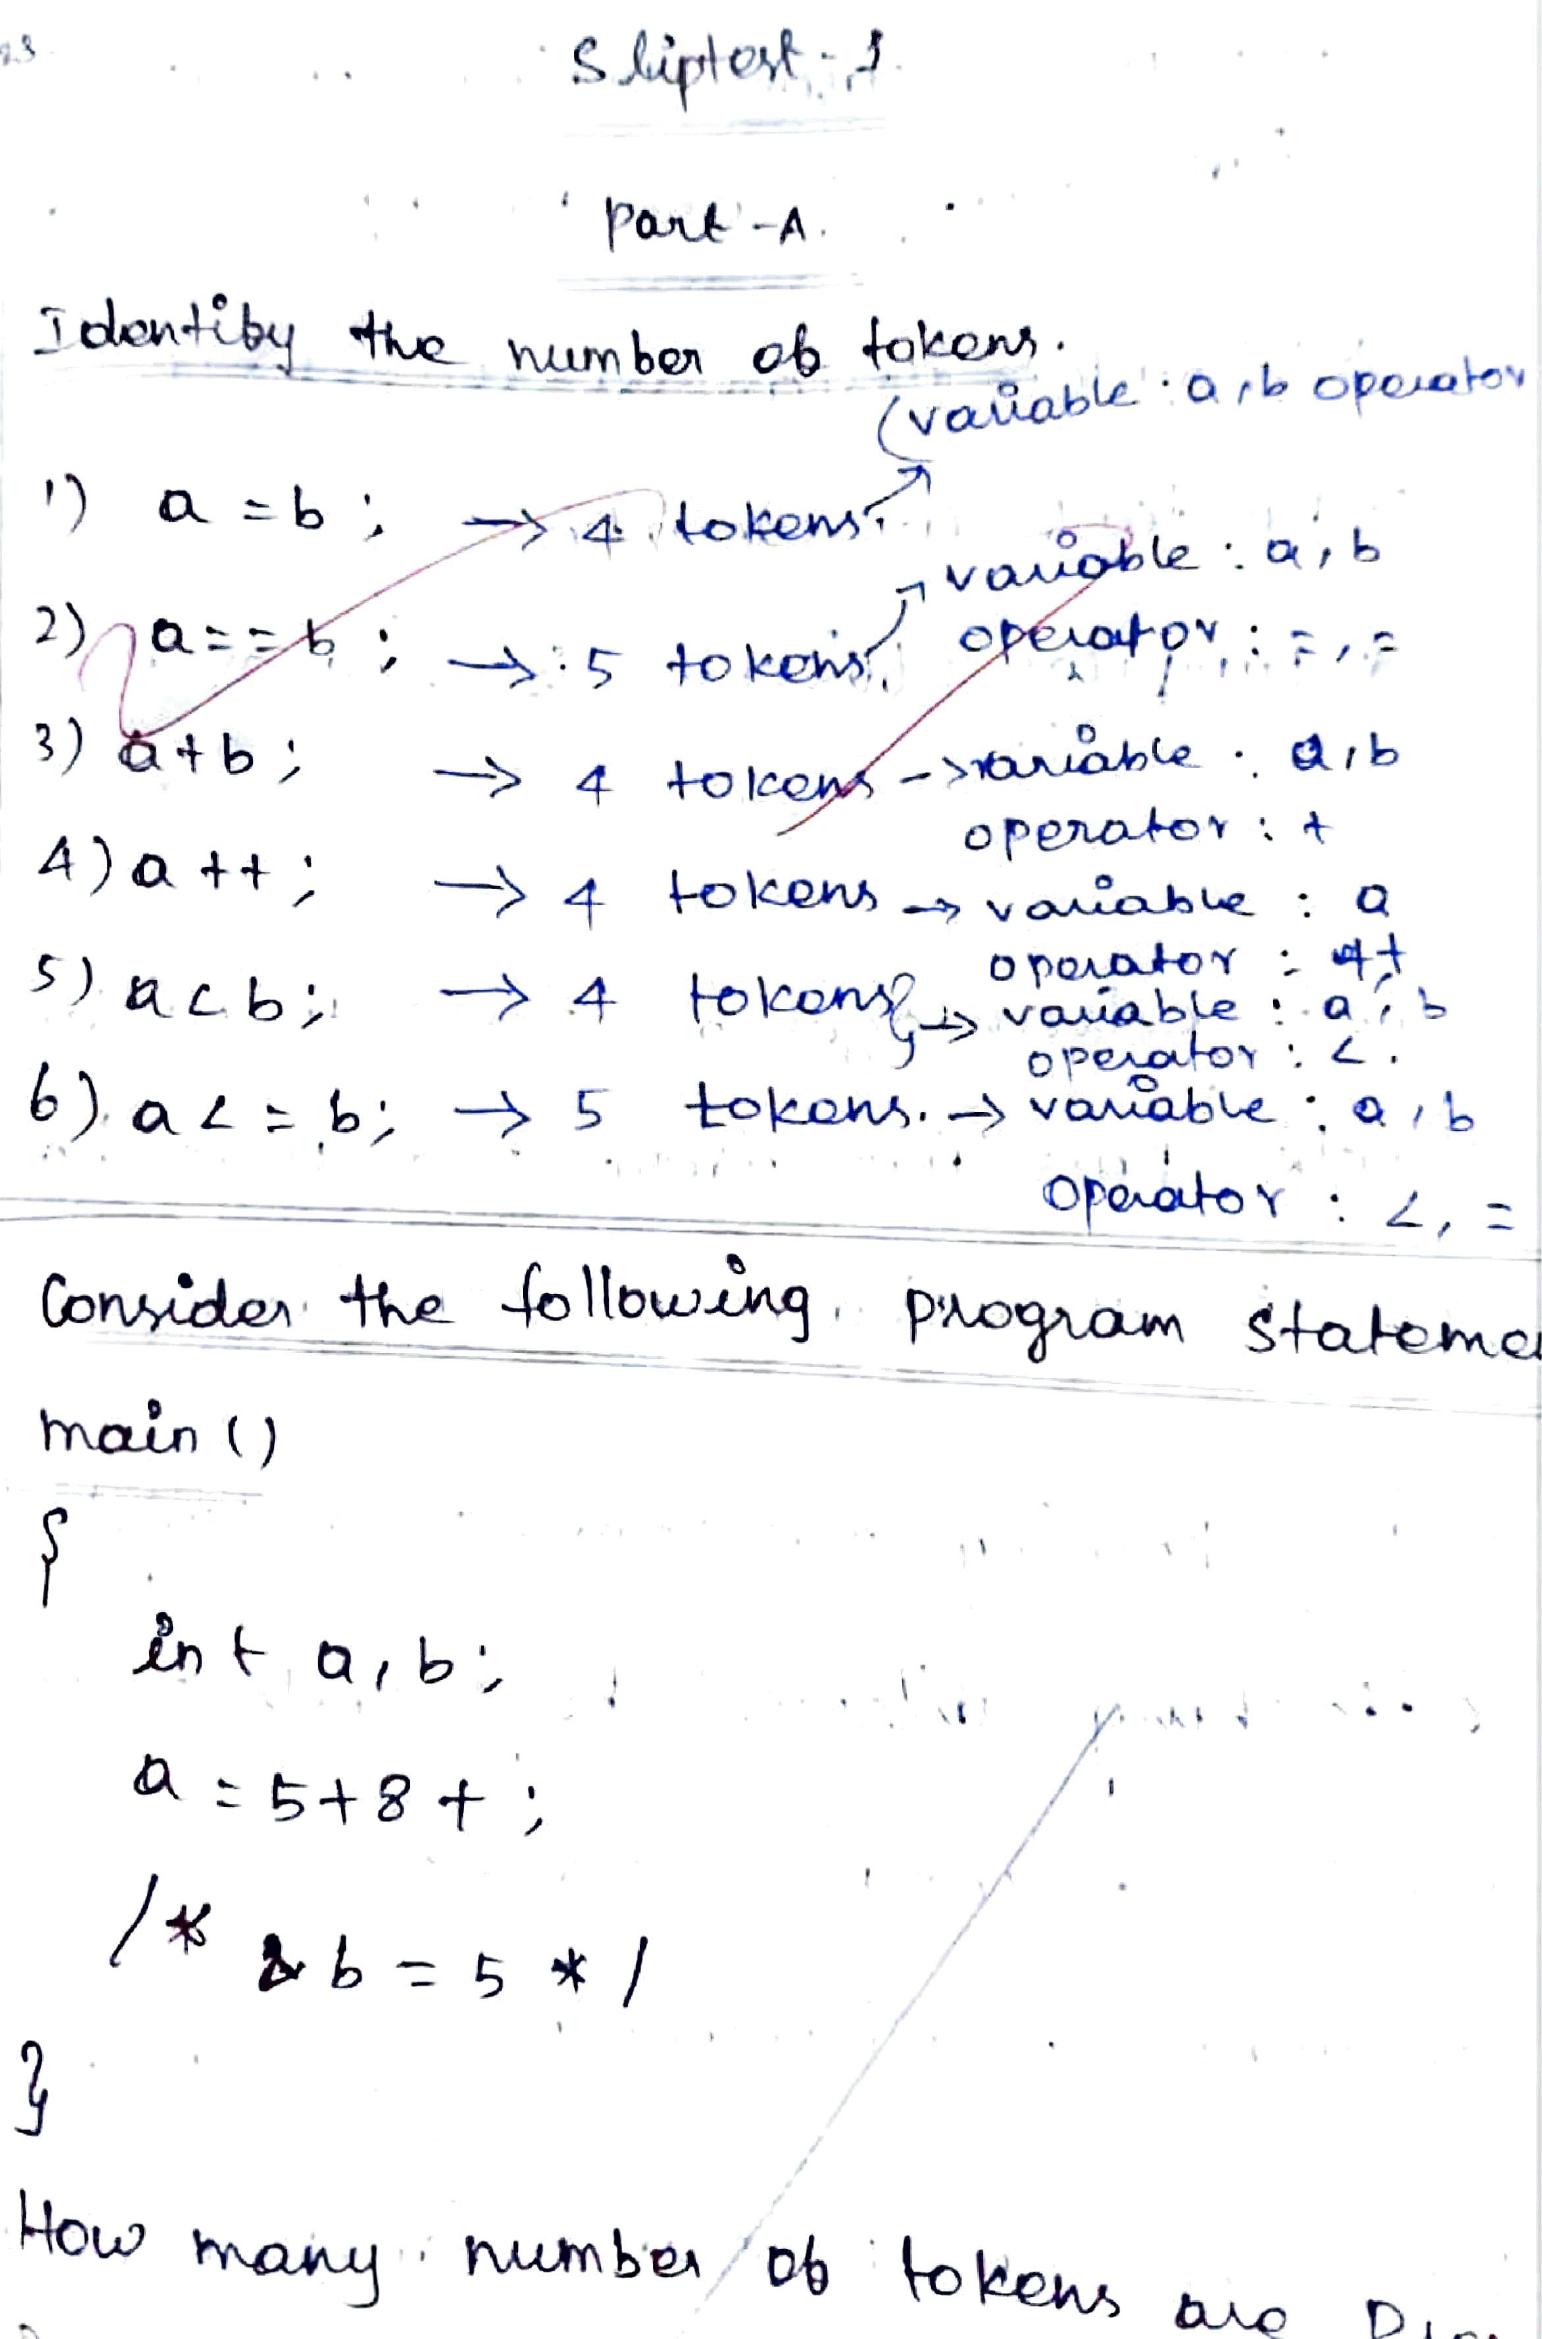 Sliptest - 1.
Part - A.
Identify the number of tokens.
(variable : a, b operator
1) a = b ; → 4 tokens.
2) a == b ; → 5 tokens. → variable : a, b
operator : =, =
3) a+b ; → 4 tokens -> variable : a, b
operator : +
4) a ++ ; → 4 tokens → variable : a
operator : +,+
5) a < b ; → 4 tokens → variable : a, b
operator : < .
6) a < = b ; → 5 tokens. → variable : a, b
operator : <, =
Consider the following program
main ()
{
int a, b ;
a = 5+8 + ;
/* b = 5 */
}
How many number of tokens are